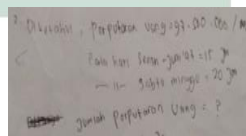 2. Diketahui, Perputaran uang = 99.000.000 / m
Pada hari Senin - Jum'at = 15 jt
— 11 — Sabtu minggu = 20 jt
Jumlah Perputaran Uang = ?